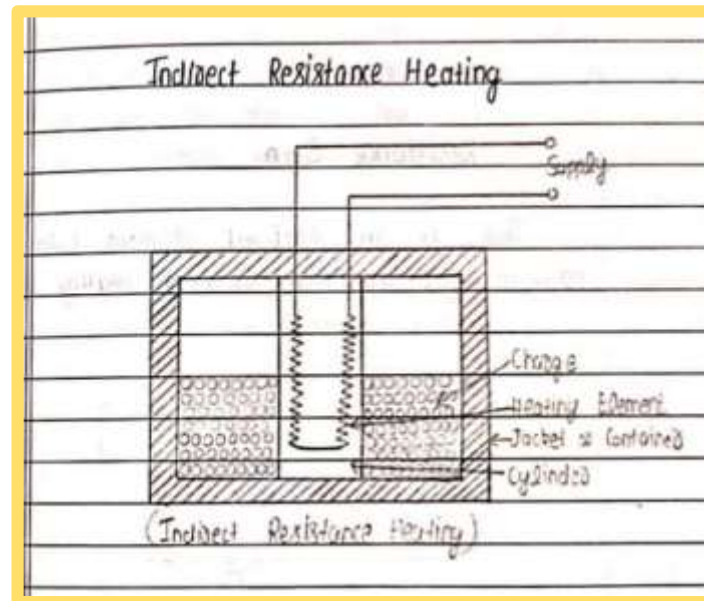 Indirect Resistance Heating
Supply
Charge
Heating Element
Jacket or Container
Cylinder
(Indirect Resistance Heating)